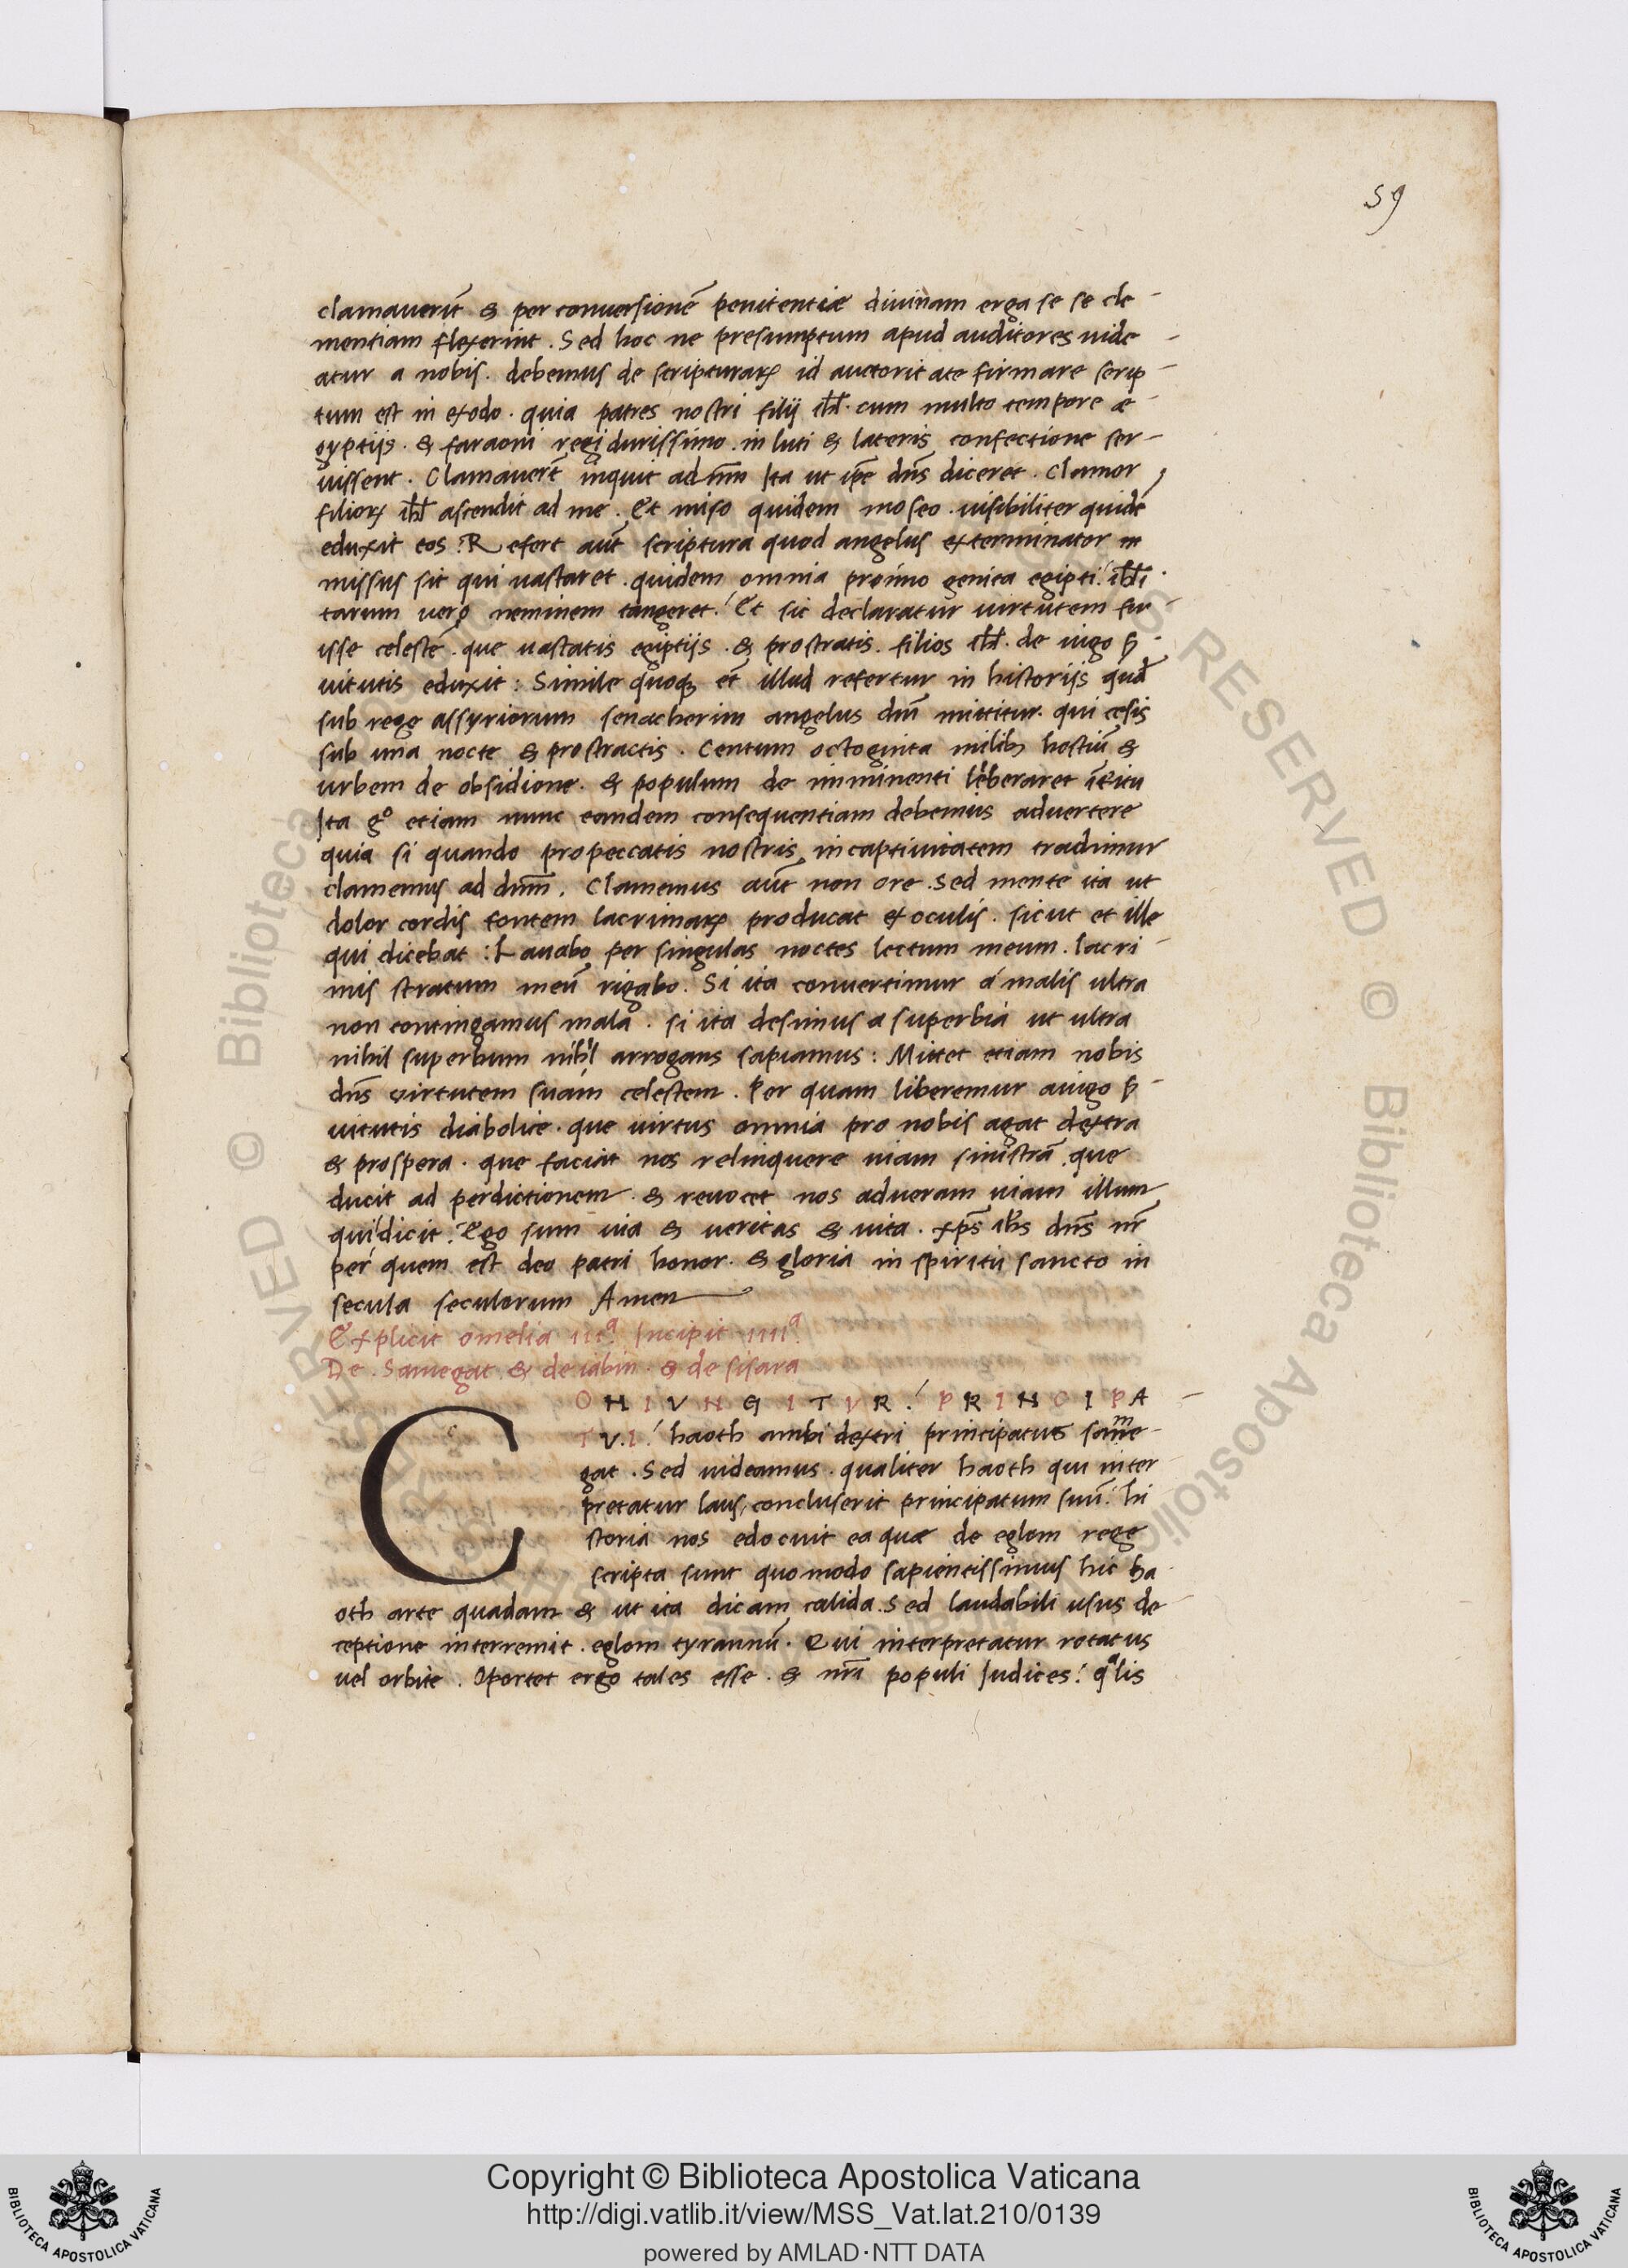 59
clamauerūt & per conuersionē penitentiæ diuinam erga se se cle-
mentiam flexerint . Sed hoc ne presumptum apud auditores uide-
atur a nobis . debemus de scripturaꝝ id auctoritate firmare scrip-
tum est in exodo . quia patres nostri filij iħl . cum multo tempore æ-
gyptijs . & faraoni regi durissimo . in luti & lateris confectione ser-
uissent . Clamauerūt inquit ad Ita ut ip̄e dn̄s diceret . Clamor
filioꝝ iħl ascendit ad me . Et miso quidem moseo . uisibiliter quidē
eduxit eos : Refert aūt scriptura quod angelus exterminator in
missus sit qui uastaret . quidem omnia primo genita egipti : iħli
tarum uero neminem tangeret : Et sic declaratur uirtutem fu-
isse celestē . que uastatis egiptijs . & prostratis . filios iħl . de iugo
uitutis eduxit : Simile quoqꝫ et illud refertur in historijs
sub rege assyriorum senacherim angelus dn̄i mittitur . qui cesis
sub una nocte & prostractis . Centum octoginta milibꝫ hostiū &
urbem de obsidione . & populum de imminenti liberaret
Ita gº etiam nunc eandem consequentiam debemus aduertere
quia si quando propeccatis nostris incaptiuitatem tradimur
clamemus ad dnm̄ . Clamemus aūt non ore . sed mente ita ut
dolor cordis fontem lacrimaꝝ producat ex oculis . sicut et ille
qui dicebat : Lauabo per singulas noctes lectum meum . lacri-
mis stratum meū rigabo . Si ita conuertimur á malis ultra
non contingamus mala . si ita desimus a superbia ut ultra
nihil superbum nihil arrogans sapiamus : Mittet etiam nobis
dn̄s uirtutem suam celestem . Per quam liberemur auigo
uitutis diabolice . que uirtus omnia pro nobis agat dextra
& prospera . que faciat nos relinquere uiam sinistrā . que
ducit ad perdictionem . & reuocet nos adueram uiam illum
qui dicit : Ego sum uia & ueritas & uita . xp̄s iħs dn̄s nr̄
per quem est deo patri honor . & gloria in spiritu sancto in
secula seculorum Amen
Explicit omelia iiiª . Incipit iiiiª .
De . Samegat . & de iabin . & de sisara
CONIVNGITVR : PRINCIPA-
TVI : haoth ambi dextri principatus same-
gat . Sed uideamus . qualiter haoth qui inter-
pretatur laus, concluserit principatum suū : hi
storia nos edocuit ea quæ de eglom rege
scripta sunt quomodo sapientissimus hic ha-
oth arte quadam & ut ita dicam calida . Sed laudabili usus de-
ceptione interremit . eglom tyrannū . Qui interpretatur rotatus
uel orbite . Oportet ergo tales esse . & nr̄i populi Iudices : qªlis
Copyright © Biblioteca Apostolica Vaticana
http://digi.vatlib.it/view/MSS_Vat.lat.210/0139
powered by AMLAD·NTT DATA